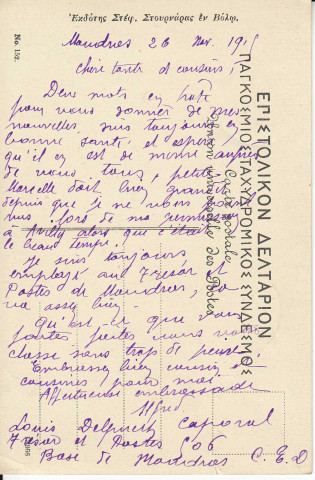 Ἐκδότης Στέφ. Στουρνάρας ἐν Βόλῳ.
No. 152.
ΕΠΙΣΤΟΛΙΚΟΝ ΔΕΛΤΑΡΙΟΝ
ΠΑΓΚΟΣΜΙΟΣ ΤΑΧΥΔΡΟΜΙΚΟΣ ΣΥΝΔΕΣΜΟΣ
Carte postale
Union universelle des Postes
Moudros 26 Nov. 191
Chère tante et cousins,
Deux mots en hâte
pour vous donner de mes
nouvelles, suis toujours en
bonne santé et espère
qu'il en est de même auprès
de vous tous, petite
Marcelle doit bien grandir
depuis que je ne l'ai
vue lors de ma permission
à alors que c'était
le beau temps.
Je suis toujours
employé au Trésor et
Postes de Moudros,
va assez bien.
Qu'est-ce que vous
faites faites nous
classe sans trop de
Embrassez bien cousin et
cousines pour moi
Affectueuse embrassade
Alfred
Louis Caporal
Trésor et Postes 506
Base de Moudros C. E. D